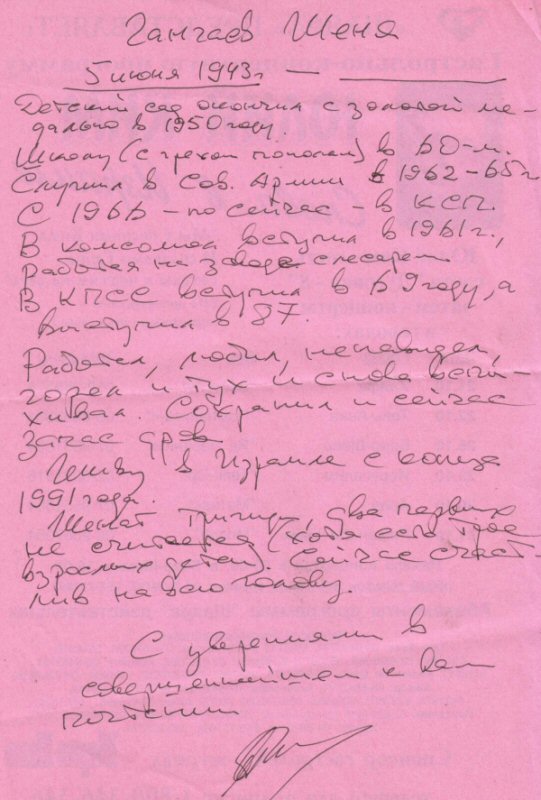 Гангаев Женя
5 июня 1943г —
Детский сад окончил с золотой ме-
далью в 1950 году.
Школу (с грехом пополам) в 60-м.
Служил в Сов. Армии в 1962-65г
С 1966 - по сейчас - в КСП.
В комсомол вступил в 1961г.,
работая на заводе слесарем.
В КПСС вступил в 69 году, а
выступил в 87.
Работал, любил, ненавидел,
горел и тух и снова вспы-
хивал. Сохранил и сейчас
запас дров.
Живу в Израиле с конца
1991 года.
Женат трижды, два первых
не считается (хотя есть трое
взрослых детей). Сейчас счаст-
лив на всю голову.
С уверениями в
совершеннейшем к Вам
почтении